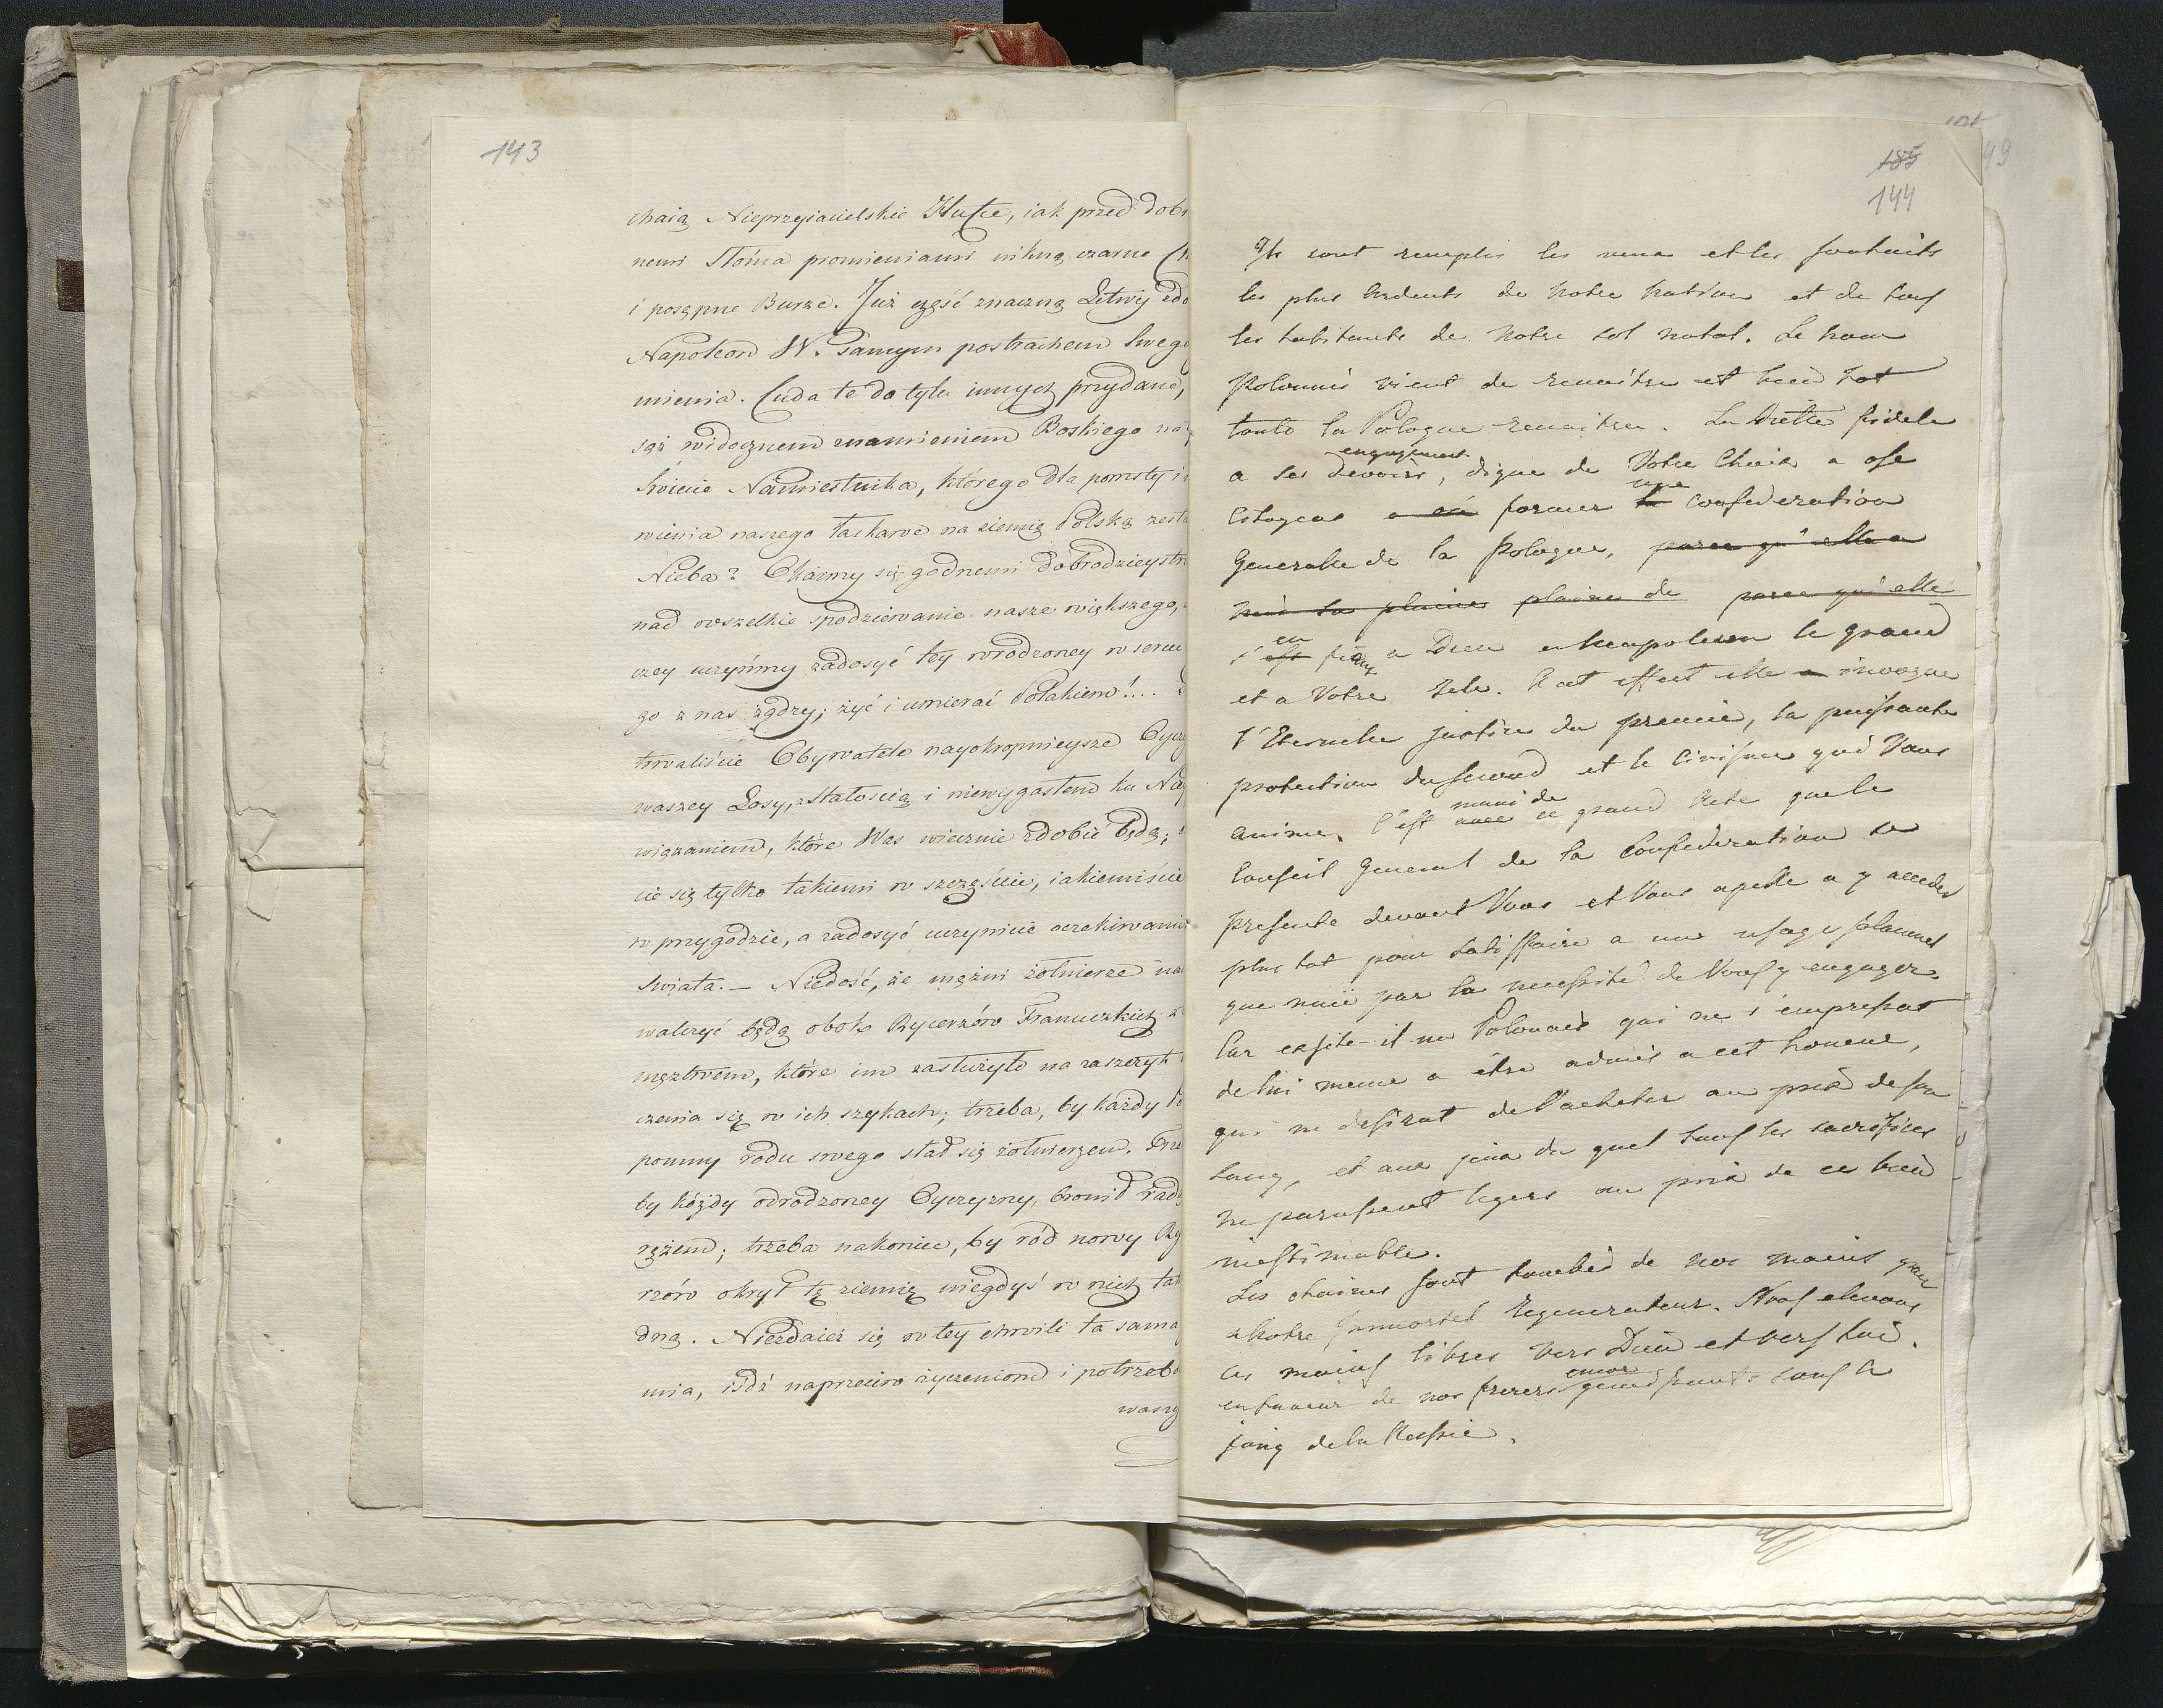 143
chaią Nieprzyiacielskie Hufce, iak przed dobr
nemi Słońca promieniami nikną czarne Ch
i posępne Burze. Już część znaczną Litwy zdo
Napoleon W. samym postrachem swego
mienia. Cuda te do tylu innych przydane,
sąż widocznem znamieniem Boskiego na
świecie Namiestnika, którego dla pomsty i
wienia naszego łaskawe na ziemię Polską zesła
Nieba? Okażmy się godnemi dobrodzieystw
nad wszelkie spodziewanie nasze większego,
czey uczyńmy zadosyć tey wrodzoney w sercu
go z nas żądzy; żyć i umierać Polakiem!...
trwaliście Obywatele nayokropnieysze Oycz
waszey Losy, z stałością i niewygasłem ku Niey
wiązaniem, które Was wiecznie zdobić będą;
cie się tylko takiemi w szczęściu, iakiemiście
w przygodzie, a zadosyć uczynicie oczekiwaniu
świata. — Niedość, że mężni żołnierze na
walczyć będą obok Rycerzów Francuzkich z
męztwem, które im zasłużyło na zaszczyt
czenia się w ich szykach; trzeba, by każdy Po
pomny rodu swego stał się żołnierzem. Trze
by każdy odrodzoney Oyczyzny, bronił rad
rężem; trzeba nakoniec, by ród nowy Ry
rzów okrył tę ziemię niegdyś w nich tak
dną. Niezdaież się w tey chwili ta sama
mia, iśdź naprzeciw życzeniom i potrzebo
waszy
49
185
144
Ils sont remplis les vœux et les souhaits
les plus ardents de notre nation et de tous
les habitants de notre sol natal. Le nom
Polonais vient de renaitre et bien tot
toute la Pologne renaitra. La Diette fidele
engagement
a ses devoirs, digne de Votre Choix a ose
une
Citoyens a sû former la confederation
Generalle de la Pologne, parce qu'elle a
plaines de parce qu'elle
en
s'est fiant a Dieu a Neapoleon le grand
et a Votre Zele. En effect elle a invoque
l'Eternelle justice du premie, la puissante
protection du second et le Civisme qui Vous
muni de
anime. C'est avec ce grand Acte que le
Conseil General de la Confederation se
presente devant Vous et Vous apelle a y acceder
plus tot pour satisffaire a une usage solennel
que mué par la necessité de Vous y engager.
Car exsite-il un Polonais qui ne s'empressat
de lui meme a etre admis a cet honeur,
qui ne desirat de l'acheter au prix de son
sang, et aux yeux du quel tous les sacrifices
ne parussent legers au prix de ce bien
inestimable.
Les chaines sont tombées de nos mains grace
a Notre Immortel Regenerateur. Nous elevons
ces mains libres vers Dieu et vers lui.
encore
en faveur de nos freres gemissants sous le
joug de la Russie.